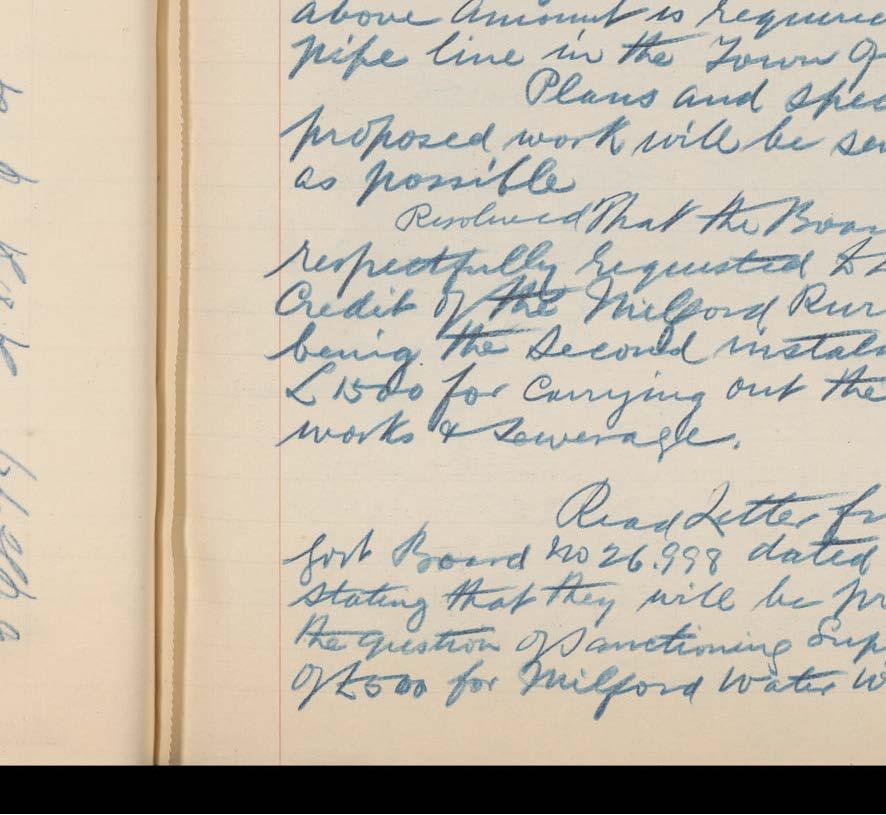 above Amount is require
pipe line in the Town of
Plans and spec
proposed work will be se
as possible
Resolved That the Boar
respectfully requested to
Credit of the Milford Rur
being the second instal
£1500 for Carrying out the
works & Sewerage.
Read Letter fr
Govt Board No 26.998 dated
stating that they will be pr
the question of Sanctioning Sup
of £500 for Milford Water W